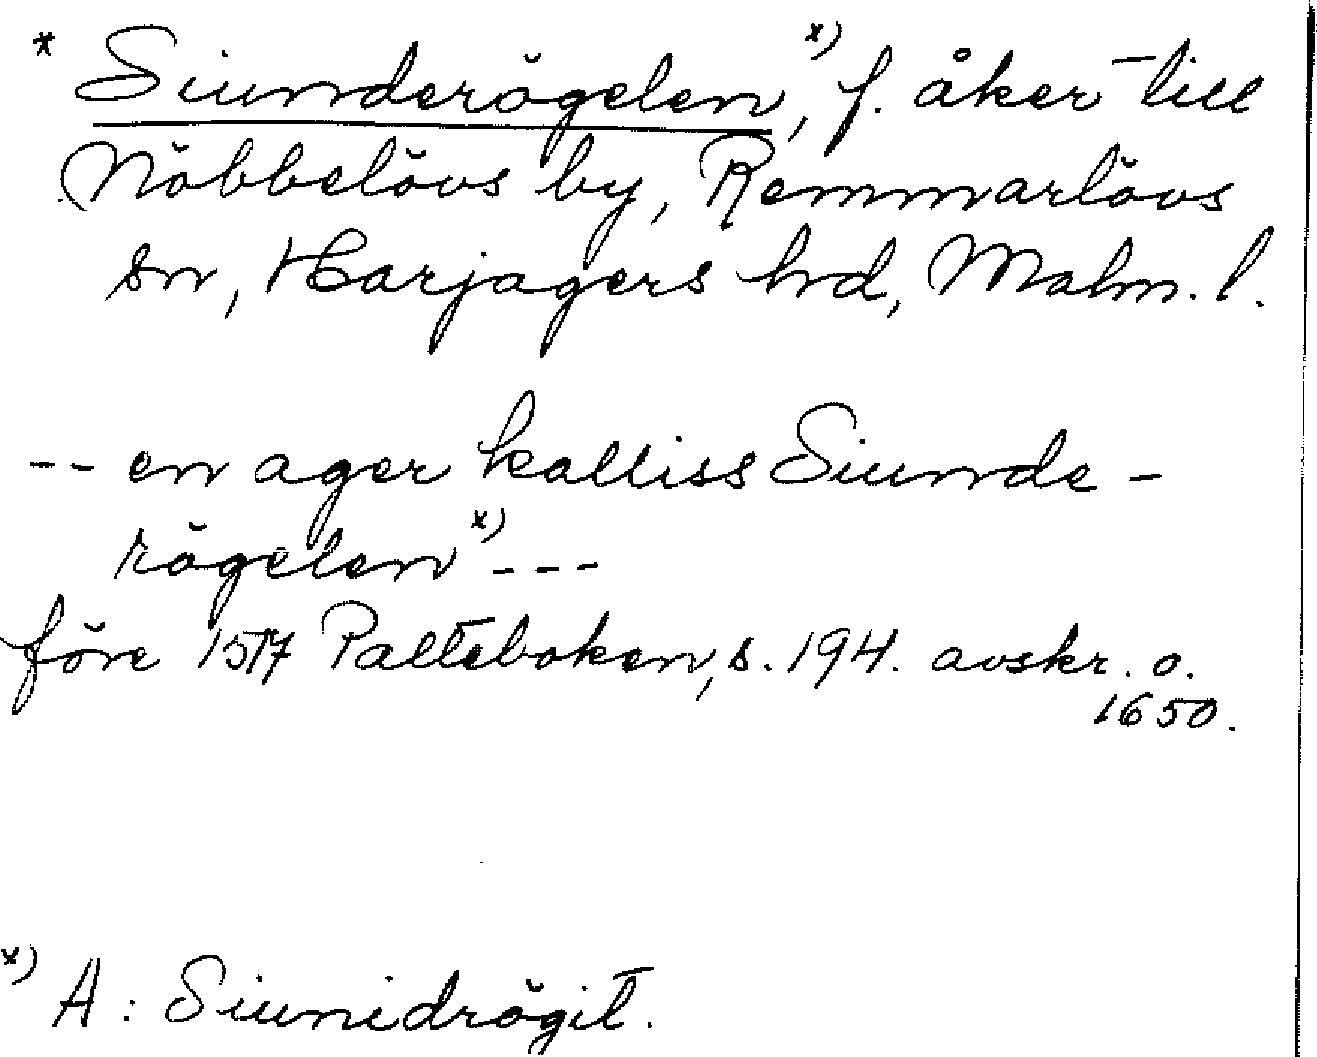 * Siunderögelen, x) f. åker till
Nöbbelövs by, Remmarlövs
sn, Harjagers hd, Malm. l.
-- en ager kalliss Siunde-
rögelen x) ---
före 1517 Palteboken, s. 194. avskr. o.
1650.
x) A: Siunidrögit.